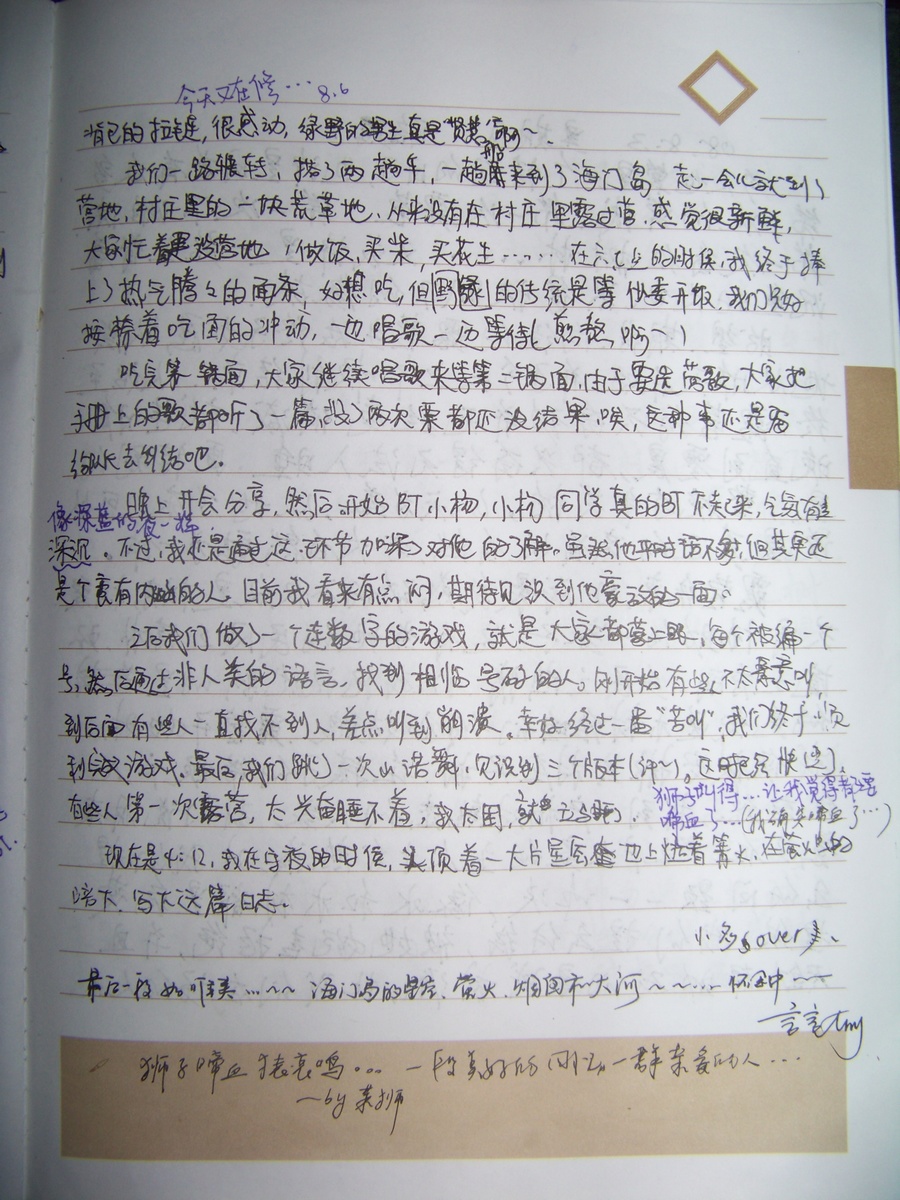 今天又在修… 8.6
背包的拉链,很感动,绿野的男生真是"贤慧"啊~
我们一路辗转,搭了两趟车,一趟船来到了海门岛 走一会儿就到了
营地,村庄里的一块荒草地,从来没有在村庄里露过营,感觉很新鲜,
大家忙着建设营地,做饭,买柴,买花生……在 的时候,我终于捧
上了热气腾々的面条,好想吃,但绿野的传统是等 开饭,我们只好
按捺着吃面的冲动,一边唱歌一边等待(煎熬啊~)
吃完第一锅面,大家继续唱歌来等第二锅面,由于要选营歌,大家把
手册上的歌都听了一篇,投了两次票都还没结果,唉,这种事还是留
给 去纠结吧。
晚上开会分享,然后开始BT小杨,小杨同学真的BT不起来,气氛有点
像深蓝的夜一样
深沉。不过,我还是通过这一环节加深了对他的了解。虽然他平时话不多,但其实还
是个蛮有内涵的人。目前我看来有点闷,期待见识到他豪放的一面。
之后我们做了一个连数字的游戏,就是大家都蒙上眼,每个被编一个
号,然后通过非人类的语言,找到相临号码的人。刚开始有些人不太愿意叫,
到后面有些人一直找不到人,差点叫到崩溃。幸好经过一番"苦叫",我们终于顺
利完成游戏。最后,我们跳了一次山语舞,见识到三个版本(汗~)。
有些人第一次露营,太兴奋睡不着;我太困,就 立马睡了.
狮子叫得…让我觉得都要
啼血了…(我确实啼血了…)
现在是4:12,我在守夜的时候,头顶着一大片星 ,地上烧着篝火,
陪大 写大这篇日志。
小 over
最后一段如 美…~~海门岛的星空、萤火、烟囱和大河~~…怀念中~~
——言言
狮子啼血猿哀鸣。。。一段美好的回忆,一群亲爱的人…
——by 英狮